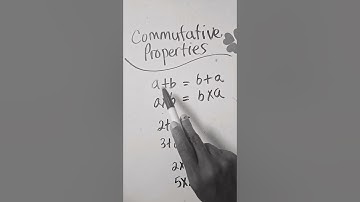 Commutative
Properties
a+b = b+a
a×b = b×a
2+
3+
2×
5×